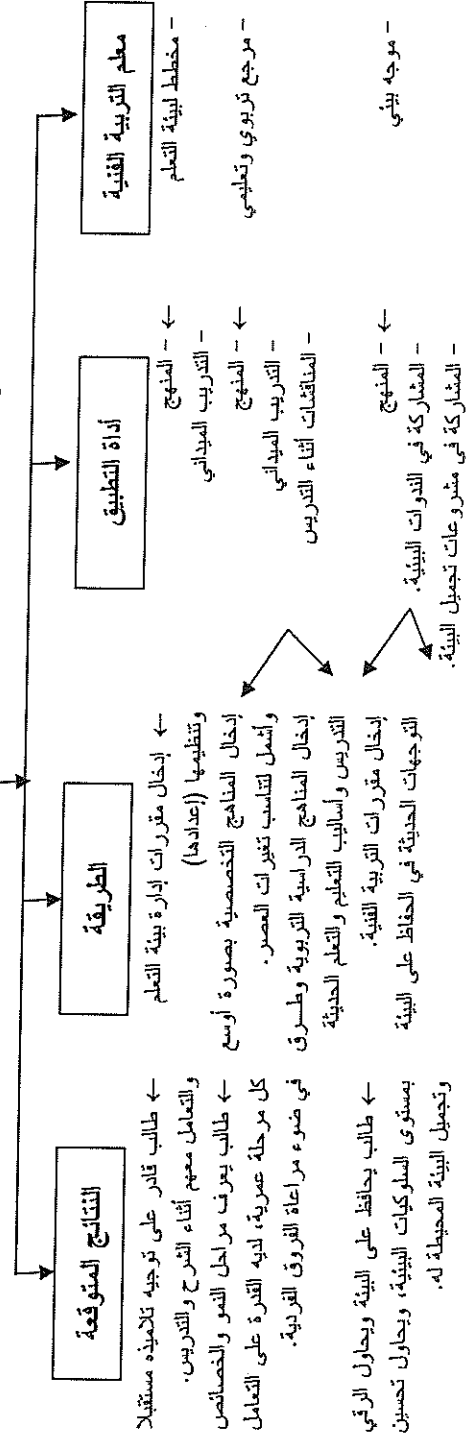 معلم التربية الفنية
- مخطط لبيئة التعلم
- مرجع تربوي وتعليمي
- موجه بيئي
أداة التطبيق
← - المنهج
- التدريب الميداني
← - المنهج
- التدريب الميداني
- المناقشات أثناء التدريس
← - المنهج
- المشاركة في الندوات البيئية.
- المشاركة في مشروعات تجميل البيئة.
الطريقة
← إدخال مقررات إدارة بيئة التعلم
وتنظيمها (إعدادها)
إدخال المناهج التخصصية بصورة أوسع
وأشمل لتناسب تغيرات العصر.
إدخال المناهج الدراسية التربوية وطرق
التدريس وأساليب التعليم والتعلم الحديثة
إدخال مقررات التربية الفنية.
التوجهات الحديثة في الحفاظ على البيئة
النتائج المتوقعة
← طالب قادر على توجيه تلاميذه مستقبلا
والتعامل معهم أثناء الشرح والتدريس.
← طالب يعرف مراحل النمو والخصائص
كل مرحلة عمرية، لديه القدرة على التعامل
في ضوء مراعاة الفروق الفردية.
← طالب يحافظ على البيئة ويحاول الرقي
بمستوى السلوكيات البيئية، ويحاول تحسين
وتجميل البيئة المحيطة له.